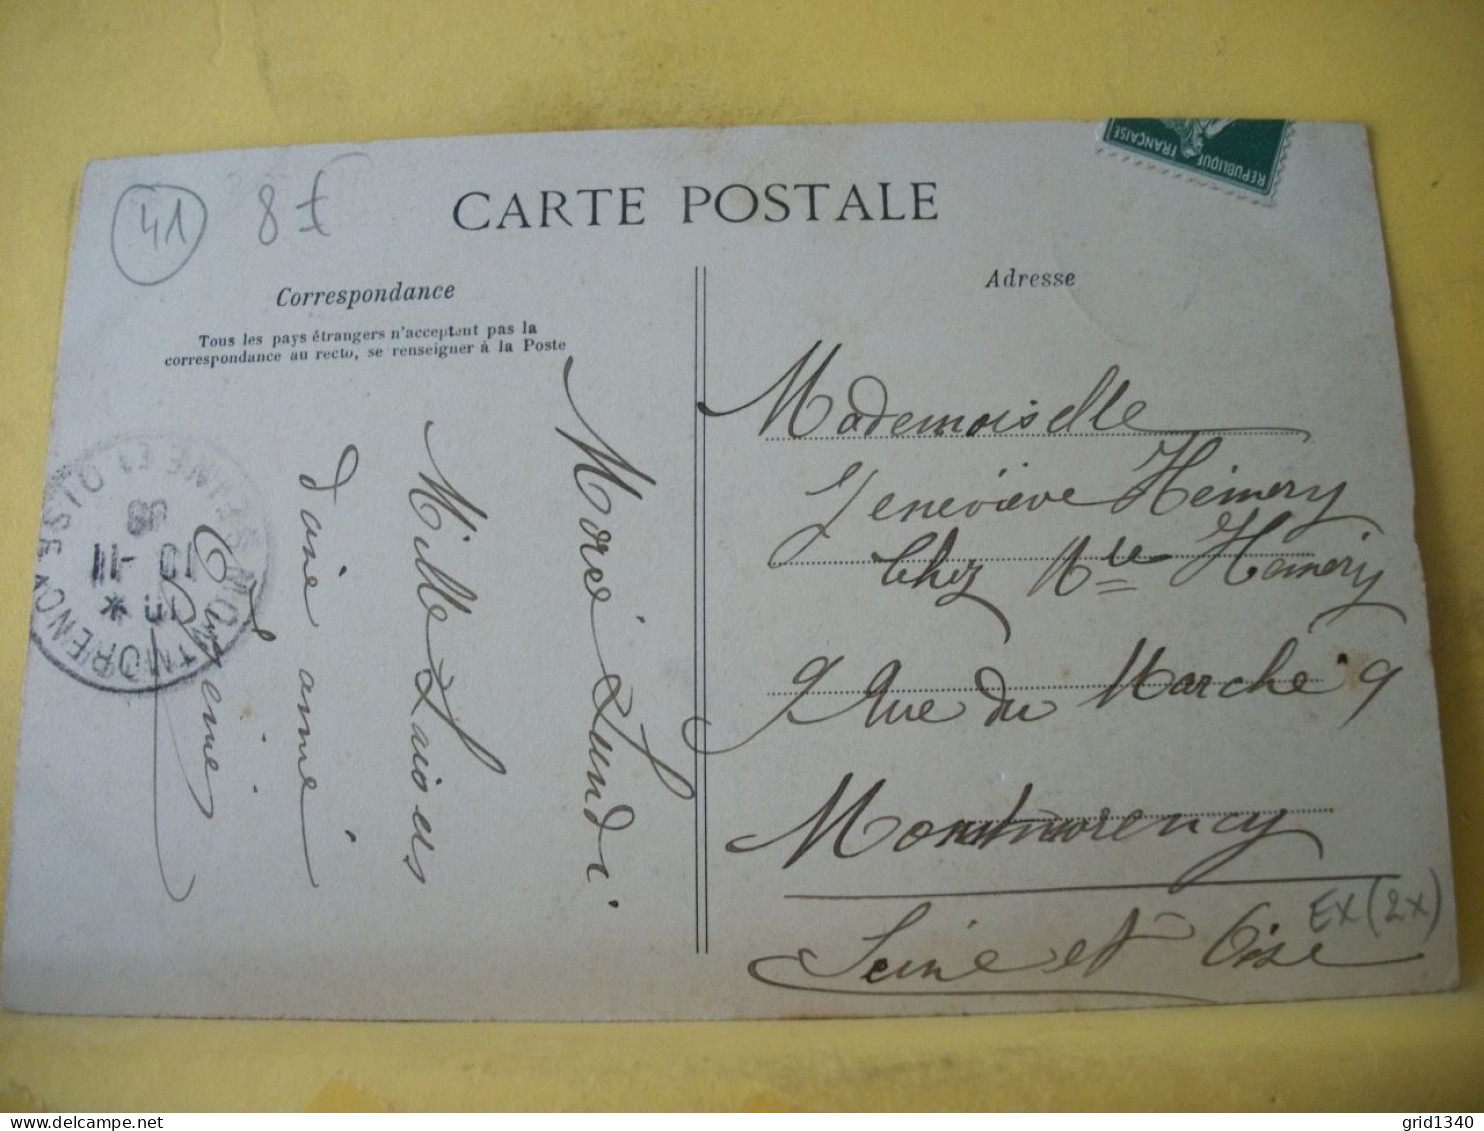 41
8f
CARTE POSTALE
REPUBLIQUE FRANÇAISE
Correspondance
Tous les pays étrangers n'acceptent pas la
correspondance au recto, se renseigner à la Poste
Adresse
Moré Lundi
Mille Baisers
d'une amie
Eugénie
Mademoiselle
Geneviève Hémery
Chez Mle Hémery
9 Rue du Marché 9
Montmorency
Seine et Oise
EX (2x)
MONTMORENCY SEINE ET OISE
10 -11
08
grid1340